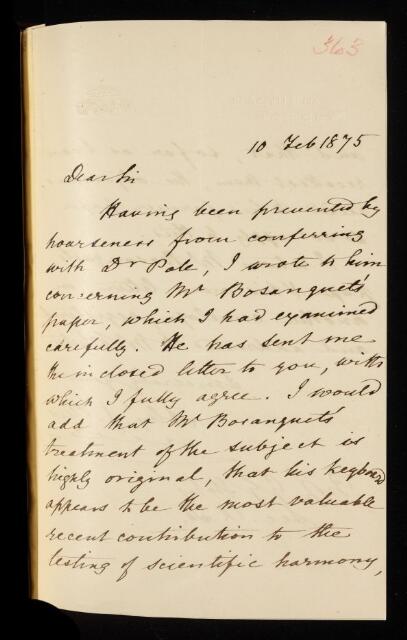 363
10 Feb 1875
Dear Sir
Having been prevented by
hoarseness from conferring
with Dr Pole, I wrote to him
concerning Mr Bosanquet's
paper, which I had examined
carefully. He has sent me
the inclosed letter to you, with
which I fully agree. I would
add that Mr Bosanquet's
treatment of the subject is
highly original, that his keyboard
appears to be the most valuable
recent contribution to the
testing of scientific harmony,